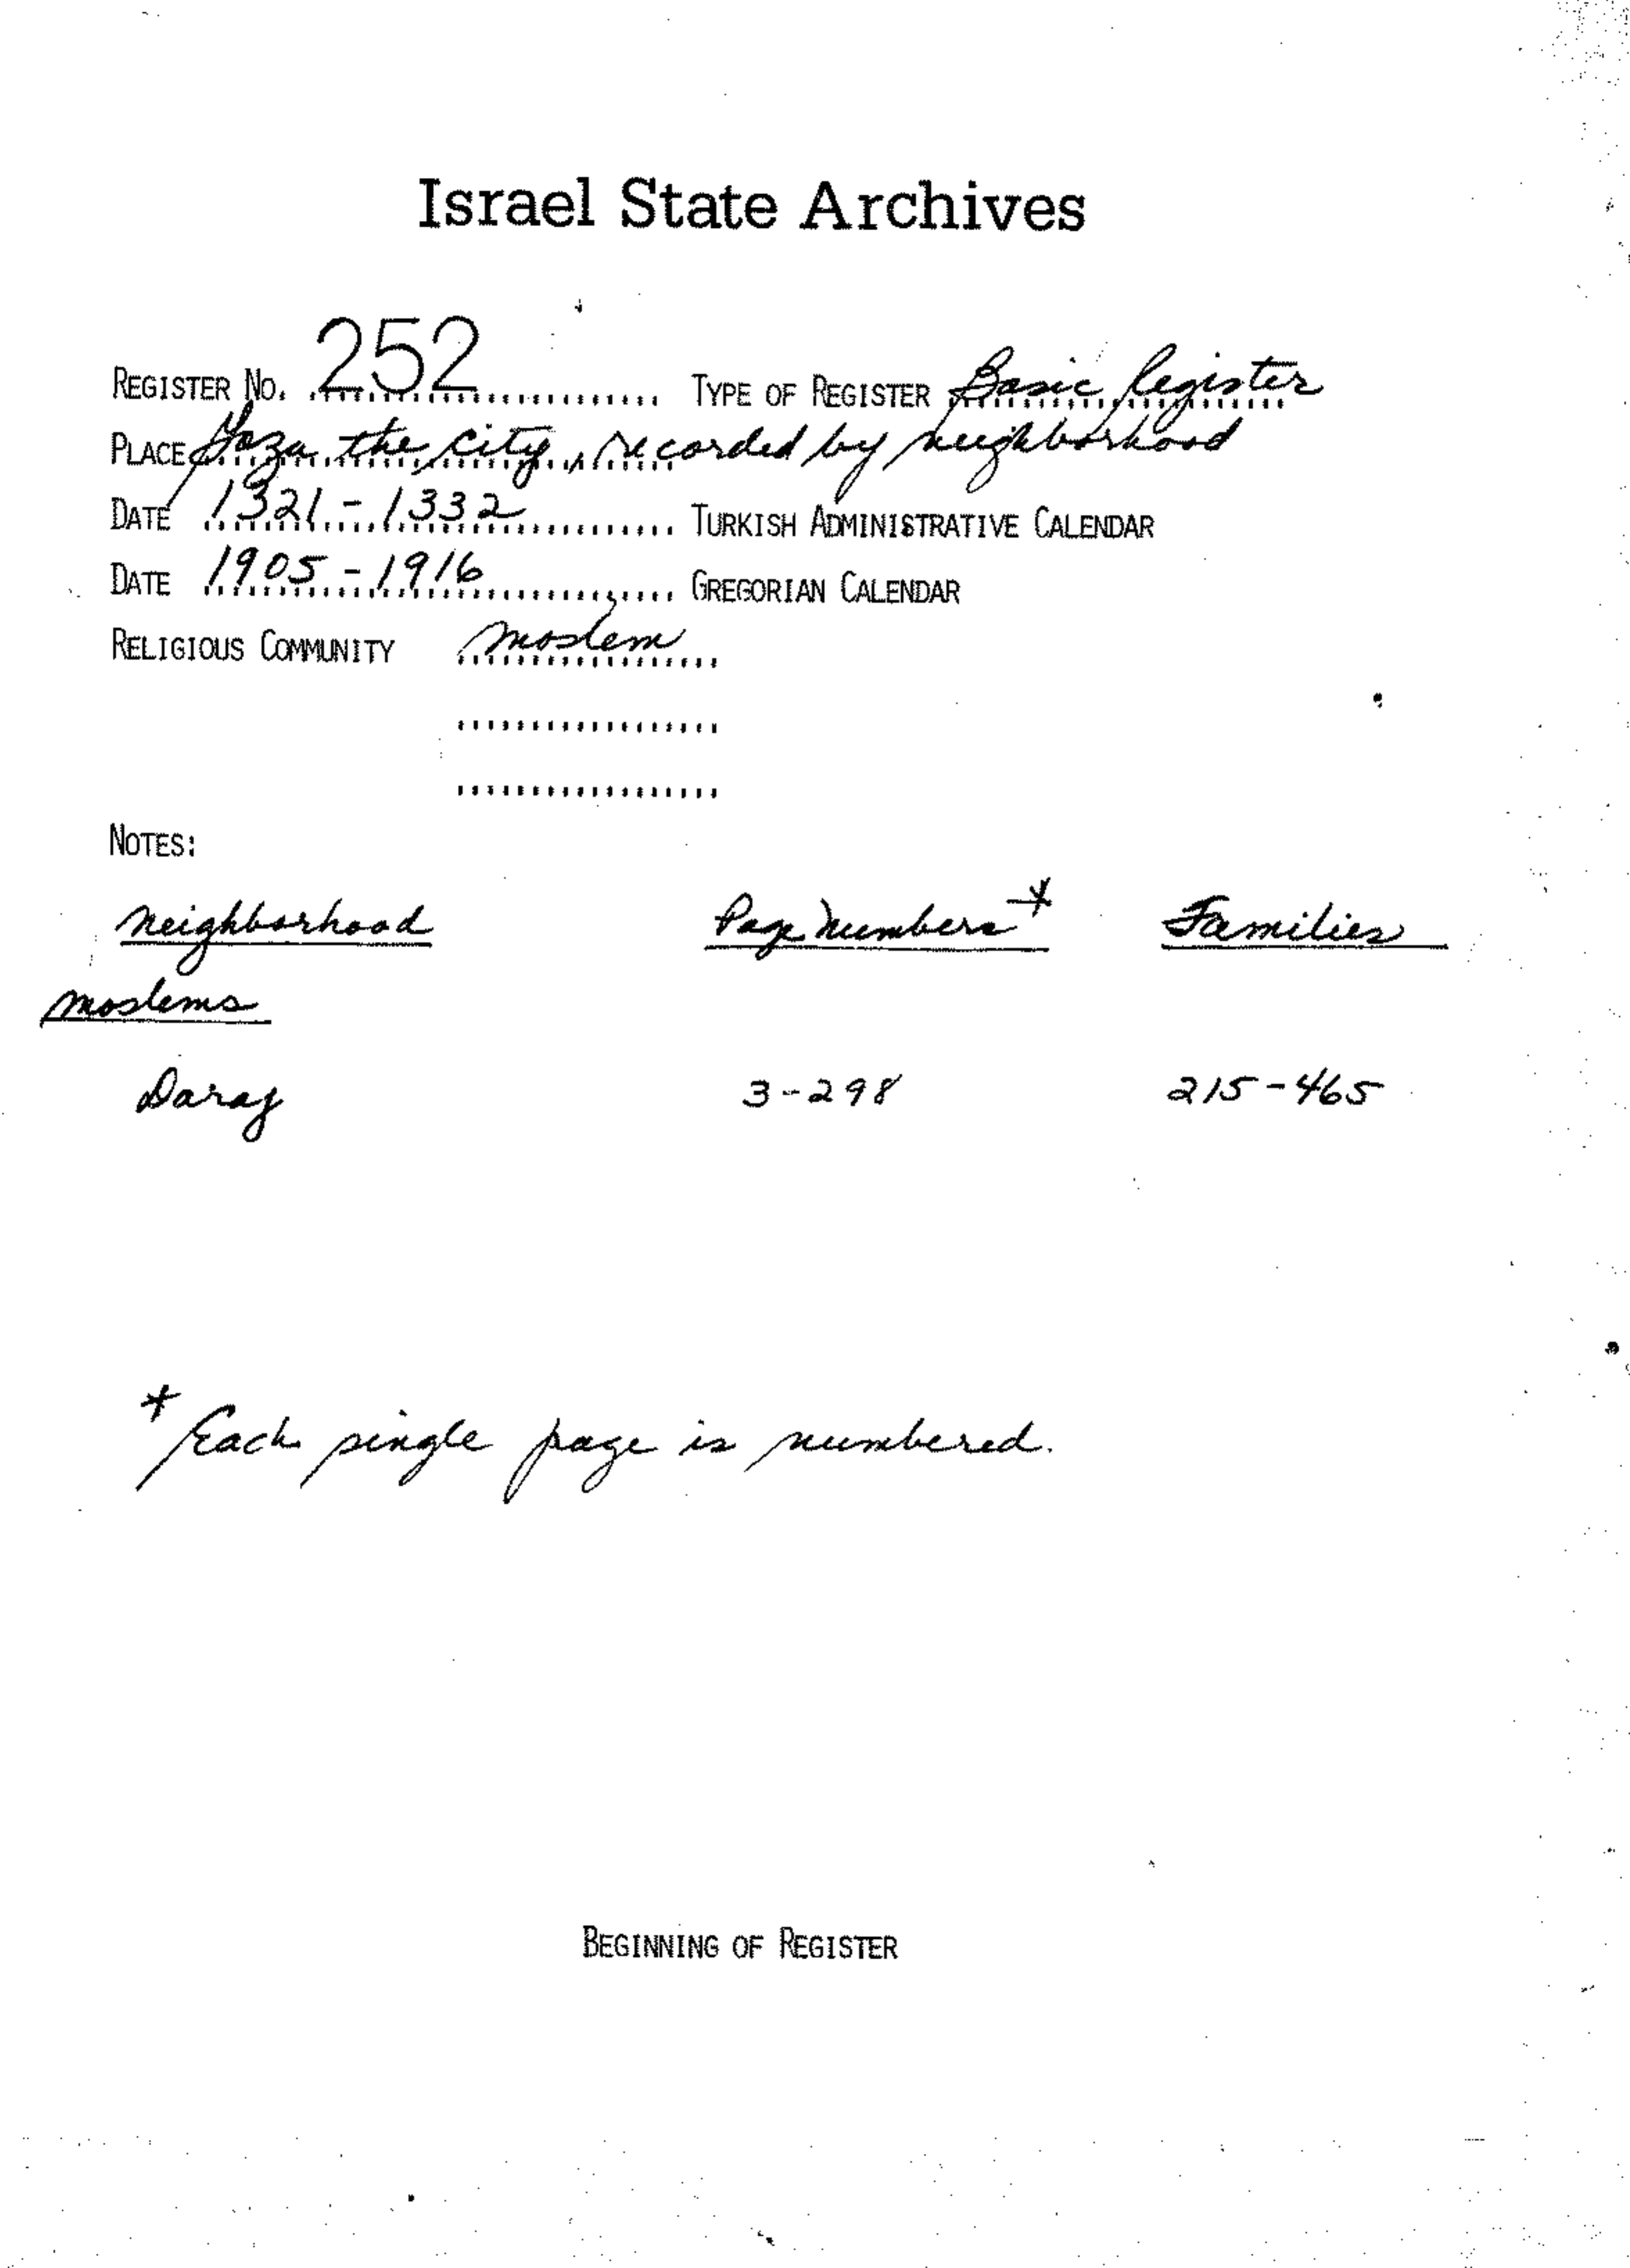 Israel State Archives
REGISTER NO. 252 TYPE OF REGISTER Basic Register
PLACE Gaza the city, recorded by neighborhood
DATE 1321-1332 TURKISH ADMINISTRATIVE CALENDAR
DATE 1905-1916 GREGORIAN CALENDAR
RELIGIOUS COMMUNITY Moslem
NOTES:
Neighborhood Page Numbers* Families
Moslems
Daraj 3-298 215-465
* Each single page is numbered.
BEGINNING OF REGISTER